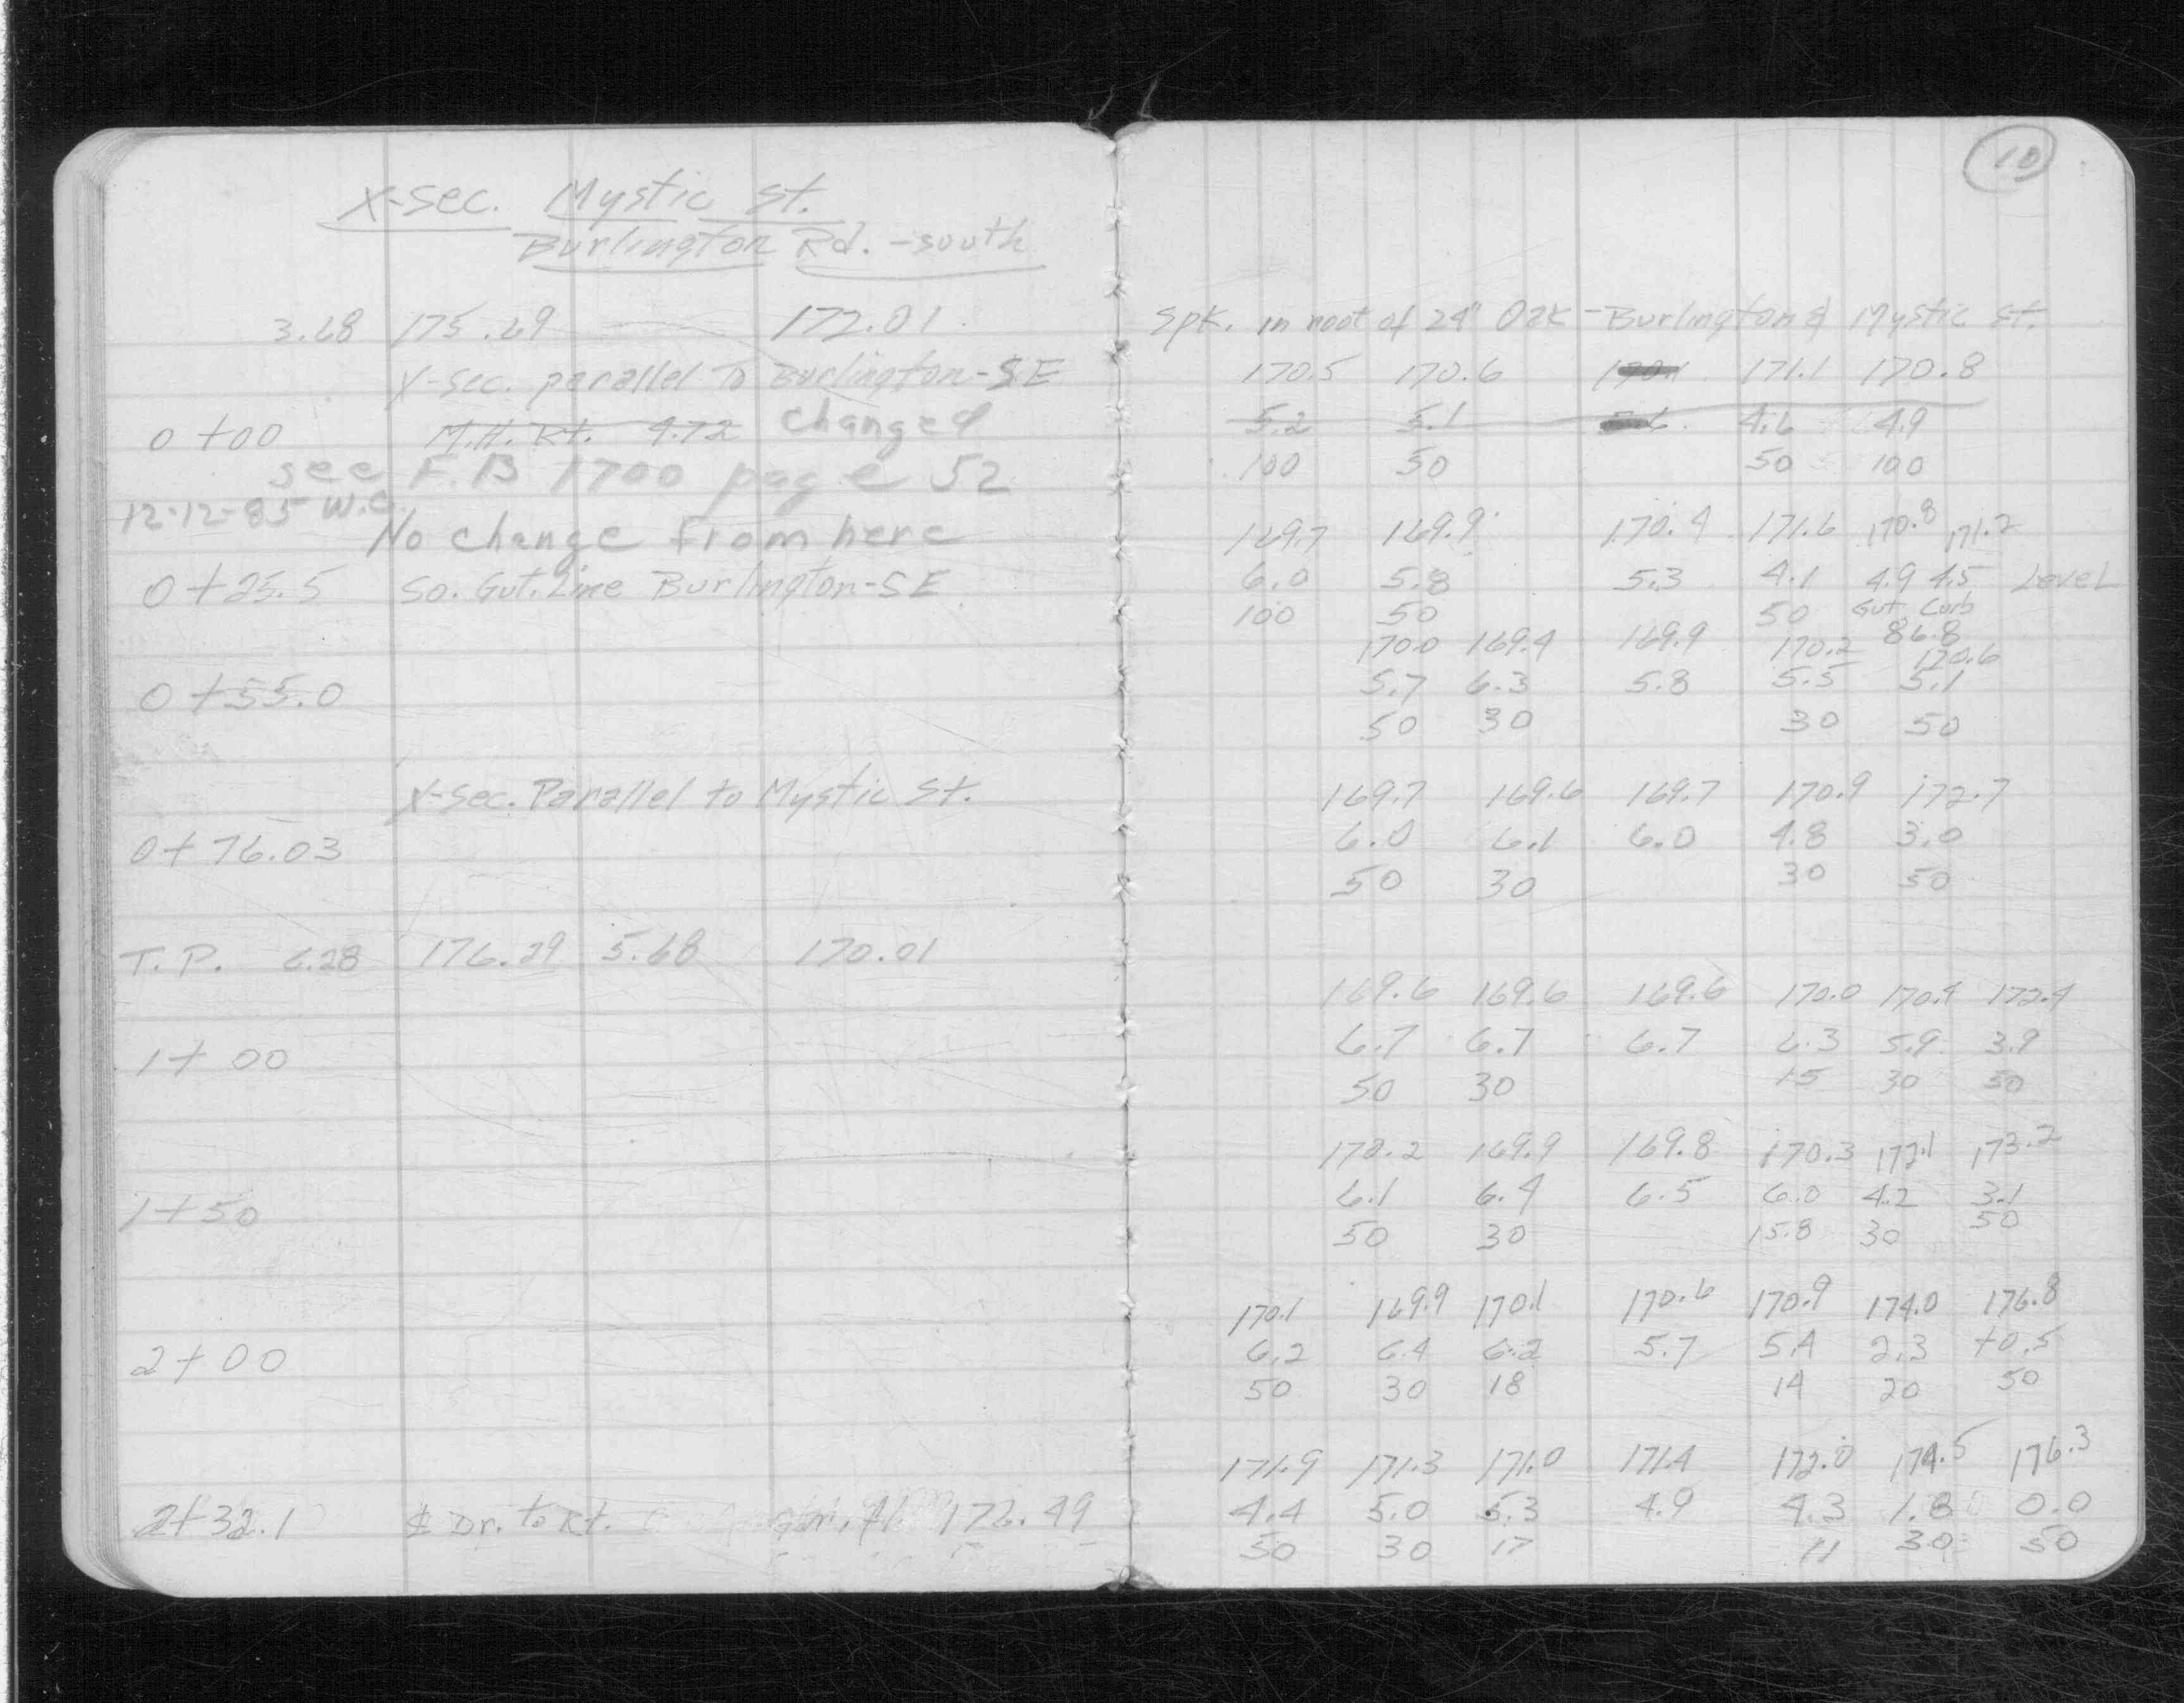 X-Sec. Mystic St.
Burlington Rd. - south
3.68 175.69 172.01
X-Sec. parallel to Burlington-SE
0+00 M.H. Rt. 4.72 changed
see F.B 1700 page 52
12-12-85 W.C.
No change from here
0+25.5 So. Gut. Line Burlington-SE
0+55.0
X-Sec. Parallel to Mystic St.
0+76.03
T.P. 6.28 176.29 5.68 170.01
1+00
1+50
2+00
2+32.1 ₵ Dr. to Rt. 172.49
10
Spk. in root of 24" Oak - Burlington & Mystic St.
170.5 170.6 171.1 170.8
5.2 5.1 4.6 4.9
100 50 50 100
169.7 169.9 170.4 171.6 170.8 171.2
6.0 5.8 5.3 4.1 4.9 4.5 Level
100 50 50 Gut Curb
86.8
170.0 169.4 169.9 170.2 170.6
5.7 6.3 5.8 5.5 5.1
50 30 30 50
169.7 169.6 169.7 170.9 172.7
6.0 6.1 6.0 4.8 3.0
50 30 30 50
169.6 169.6 169.6 170.0 170.4 172.4
6.7 6.7 6.7 6.3 5.9 3.9
50 30 15 30 50
170.2 169.9 169.8 170.3 172.1 173.2
6.1 6.4 6.5 6.0 4.2 3.1
50 30 15.8 30 50
170.1 169.9 170.1 170.6 170.9 174.0 176.8
6.2 6.4 6.2 5.7 5.4 2.3 +0.5
50 30 18 14 20 50
171.9 171.3 171.0 171.4 172.0 174.5 176.3
4.4 5.0 5.3 4.9 4.3 1.8 0.0
50 30 17 11 30 50